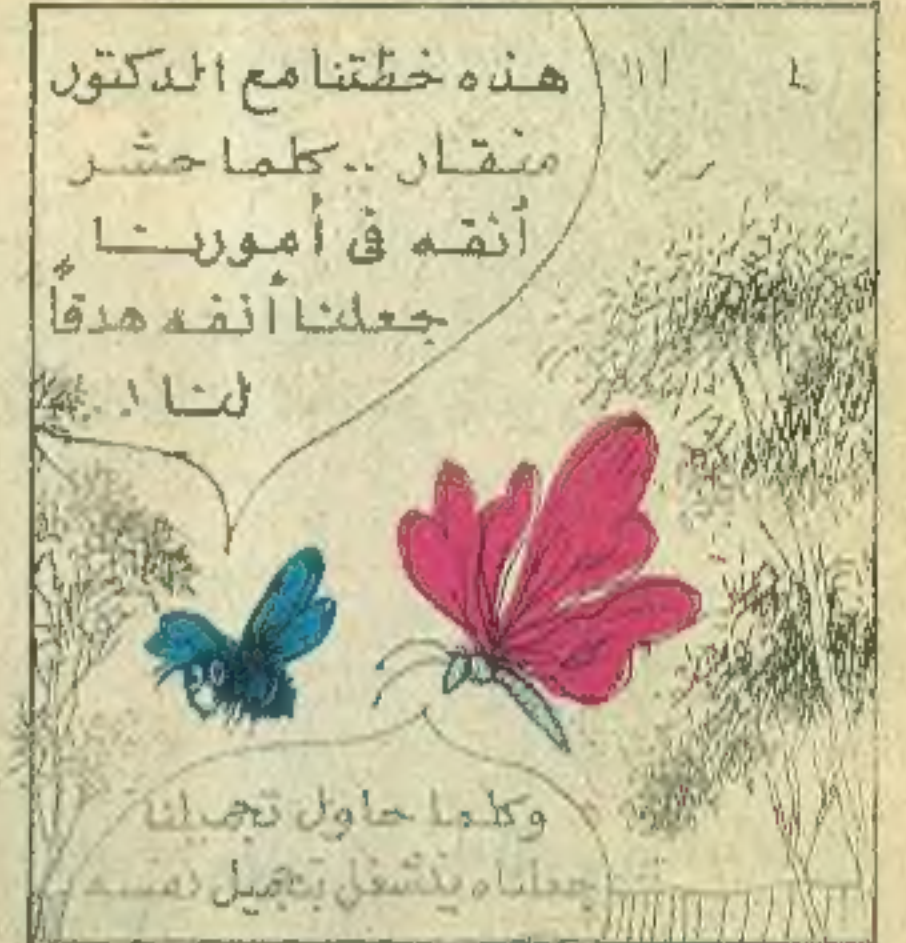 هذه خطتنا مع الدكتور
منقار .. كلما حشر
أنفه في أمورنا
جعلنا أنفه هدفاً
لنا ! ..
وكلما حاول تجميلنا
جعلناه ينشغل بتجميل نفسه